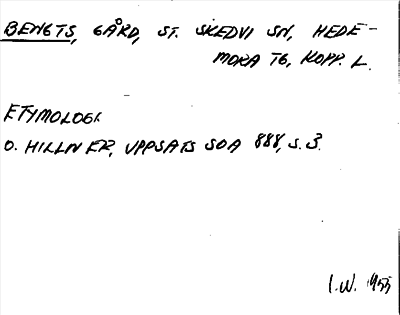 BENGTS, GÅRD, ST. SKEDVI SN, HEDE-
MORA TG, KOPP. L.
ETYMOLOGI.
O. HILLNER, UPPSATS SOA 888, S. 3.
I.W. 1955